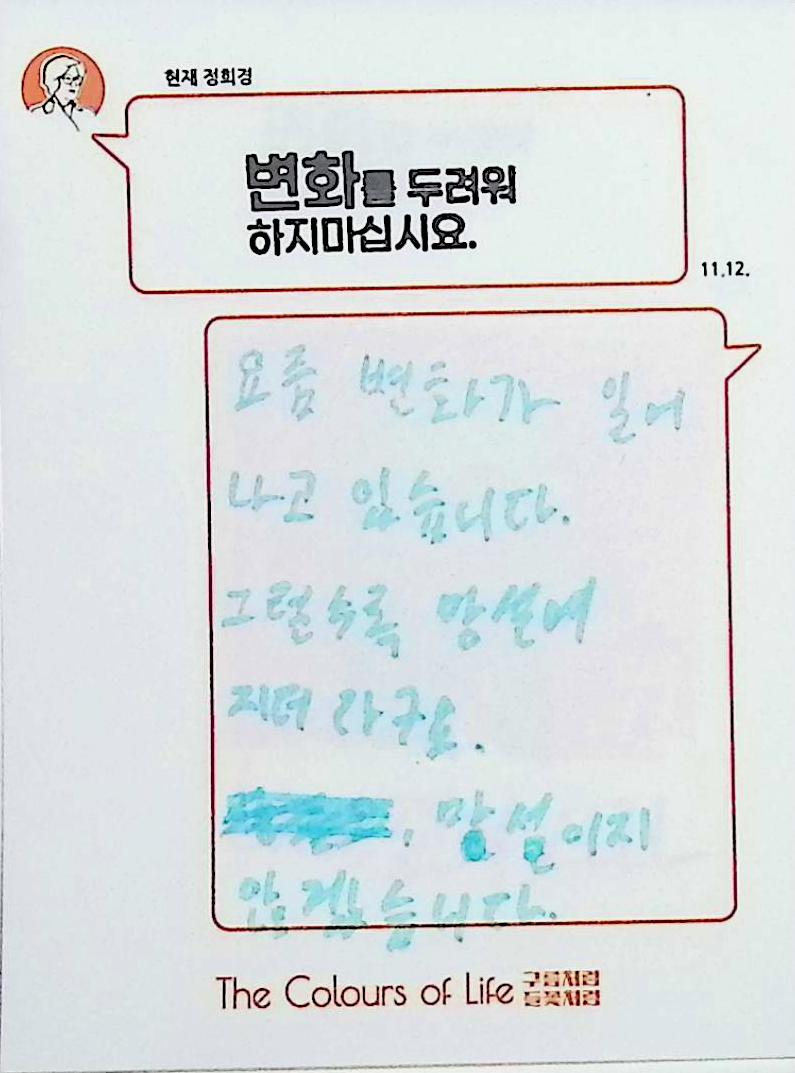 현재 정희경
변화를 두려워
하지마십시요.
11.12.
요즘 변화가 일어
나고 있습니다.
그럴수록 망설여
지더라구요.
, 망설이지
않겠습니다.
The Colours of Life 구름처럼
들꽃처럼